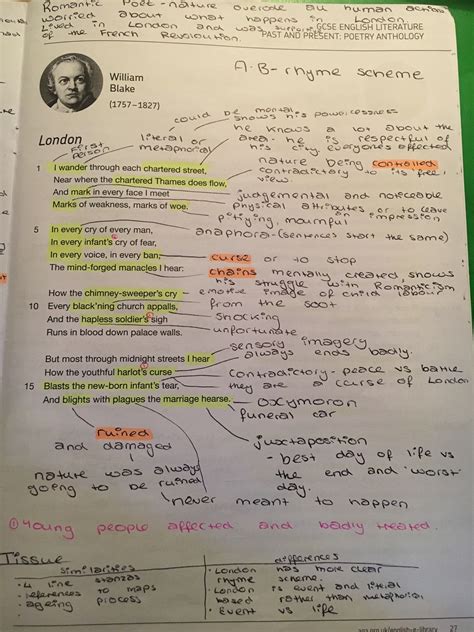 Romantic Poet - nature overode all human actions
worried about what happens in London.
Lived in London and was
of the French Revolution.
GCSE ENGLISH LITERATURE
PAST AND PRESENT: POETRY ANTHOLOGY
William
Blake
(1757–1827)
A-B-rhyme scheme
could be mental
shows his powerlessness
London
First person
literal or
metaphorical
he knows a lot about the
area. he is respectful of
his city, everyones affected
1 I wander through each chartered street,
Near where the chartered Thames does flow,
And mark in every face I meet
Marks of weakness, marks of woe.
nature being controlled
contradictory to its free
view.
judgemental and noticeable
physical attributes or to leave
an impression
pitiying, mournful
5 In every cry of every man,
In every infant's cry of fear,
In every voice, in every ban,
The mind-forged manacles I hear:
anaphora-(sentences start the same)
curse or to stop
chains mentally created, shows
his struggle with Romanticism
How the chimney-sweeper's cry
10 Every black'ning church appalls,
And the hapless soldier's sigh
Runs in blood down palace walls.
emotive image of child labour
from the soot
shocking
unfortunate
But most through midnight streets I hear
How the youthful harlot's curse
15 Blasts the new-born infant's tear,
And blights with plagues the marriage hearse.
sensory imagery
always ends badly.
contradictory - peace vs battle
they are a curse of London
oxymoron
funeral car
ruined
and damaged
nature was always
going to be ruined
juxtaposition
- best day of life vs
the end and 'worst
day.
never meant to happen
Young people affected and badly treated.
Tissue
similarities
differences
· 4 line stanzas
· references to maps
· ageing process
· London has more clear
rhyme scheme.
· London is event and literal
based rather than metaphorical
· Event vs life
27